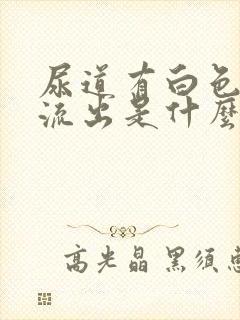 尿道有白色
流出是什麼
高光晶 黑須惠